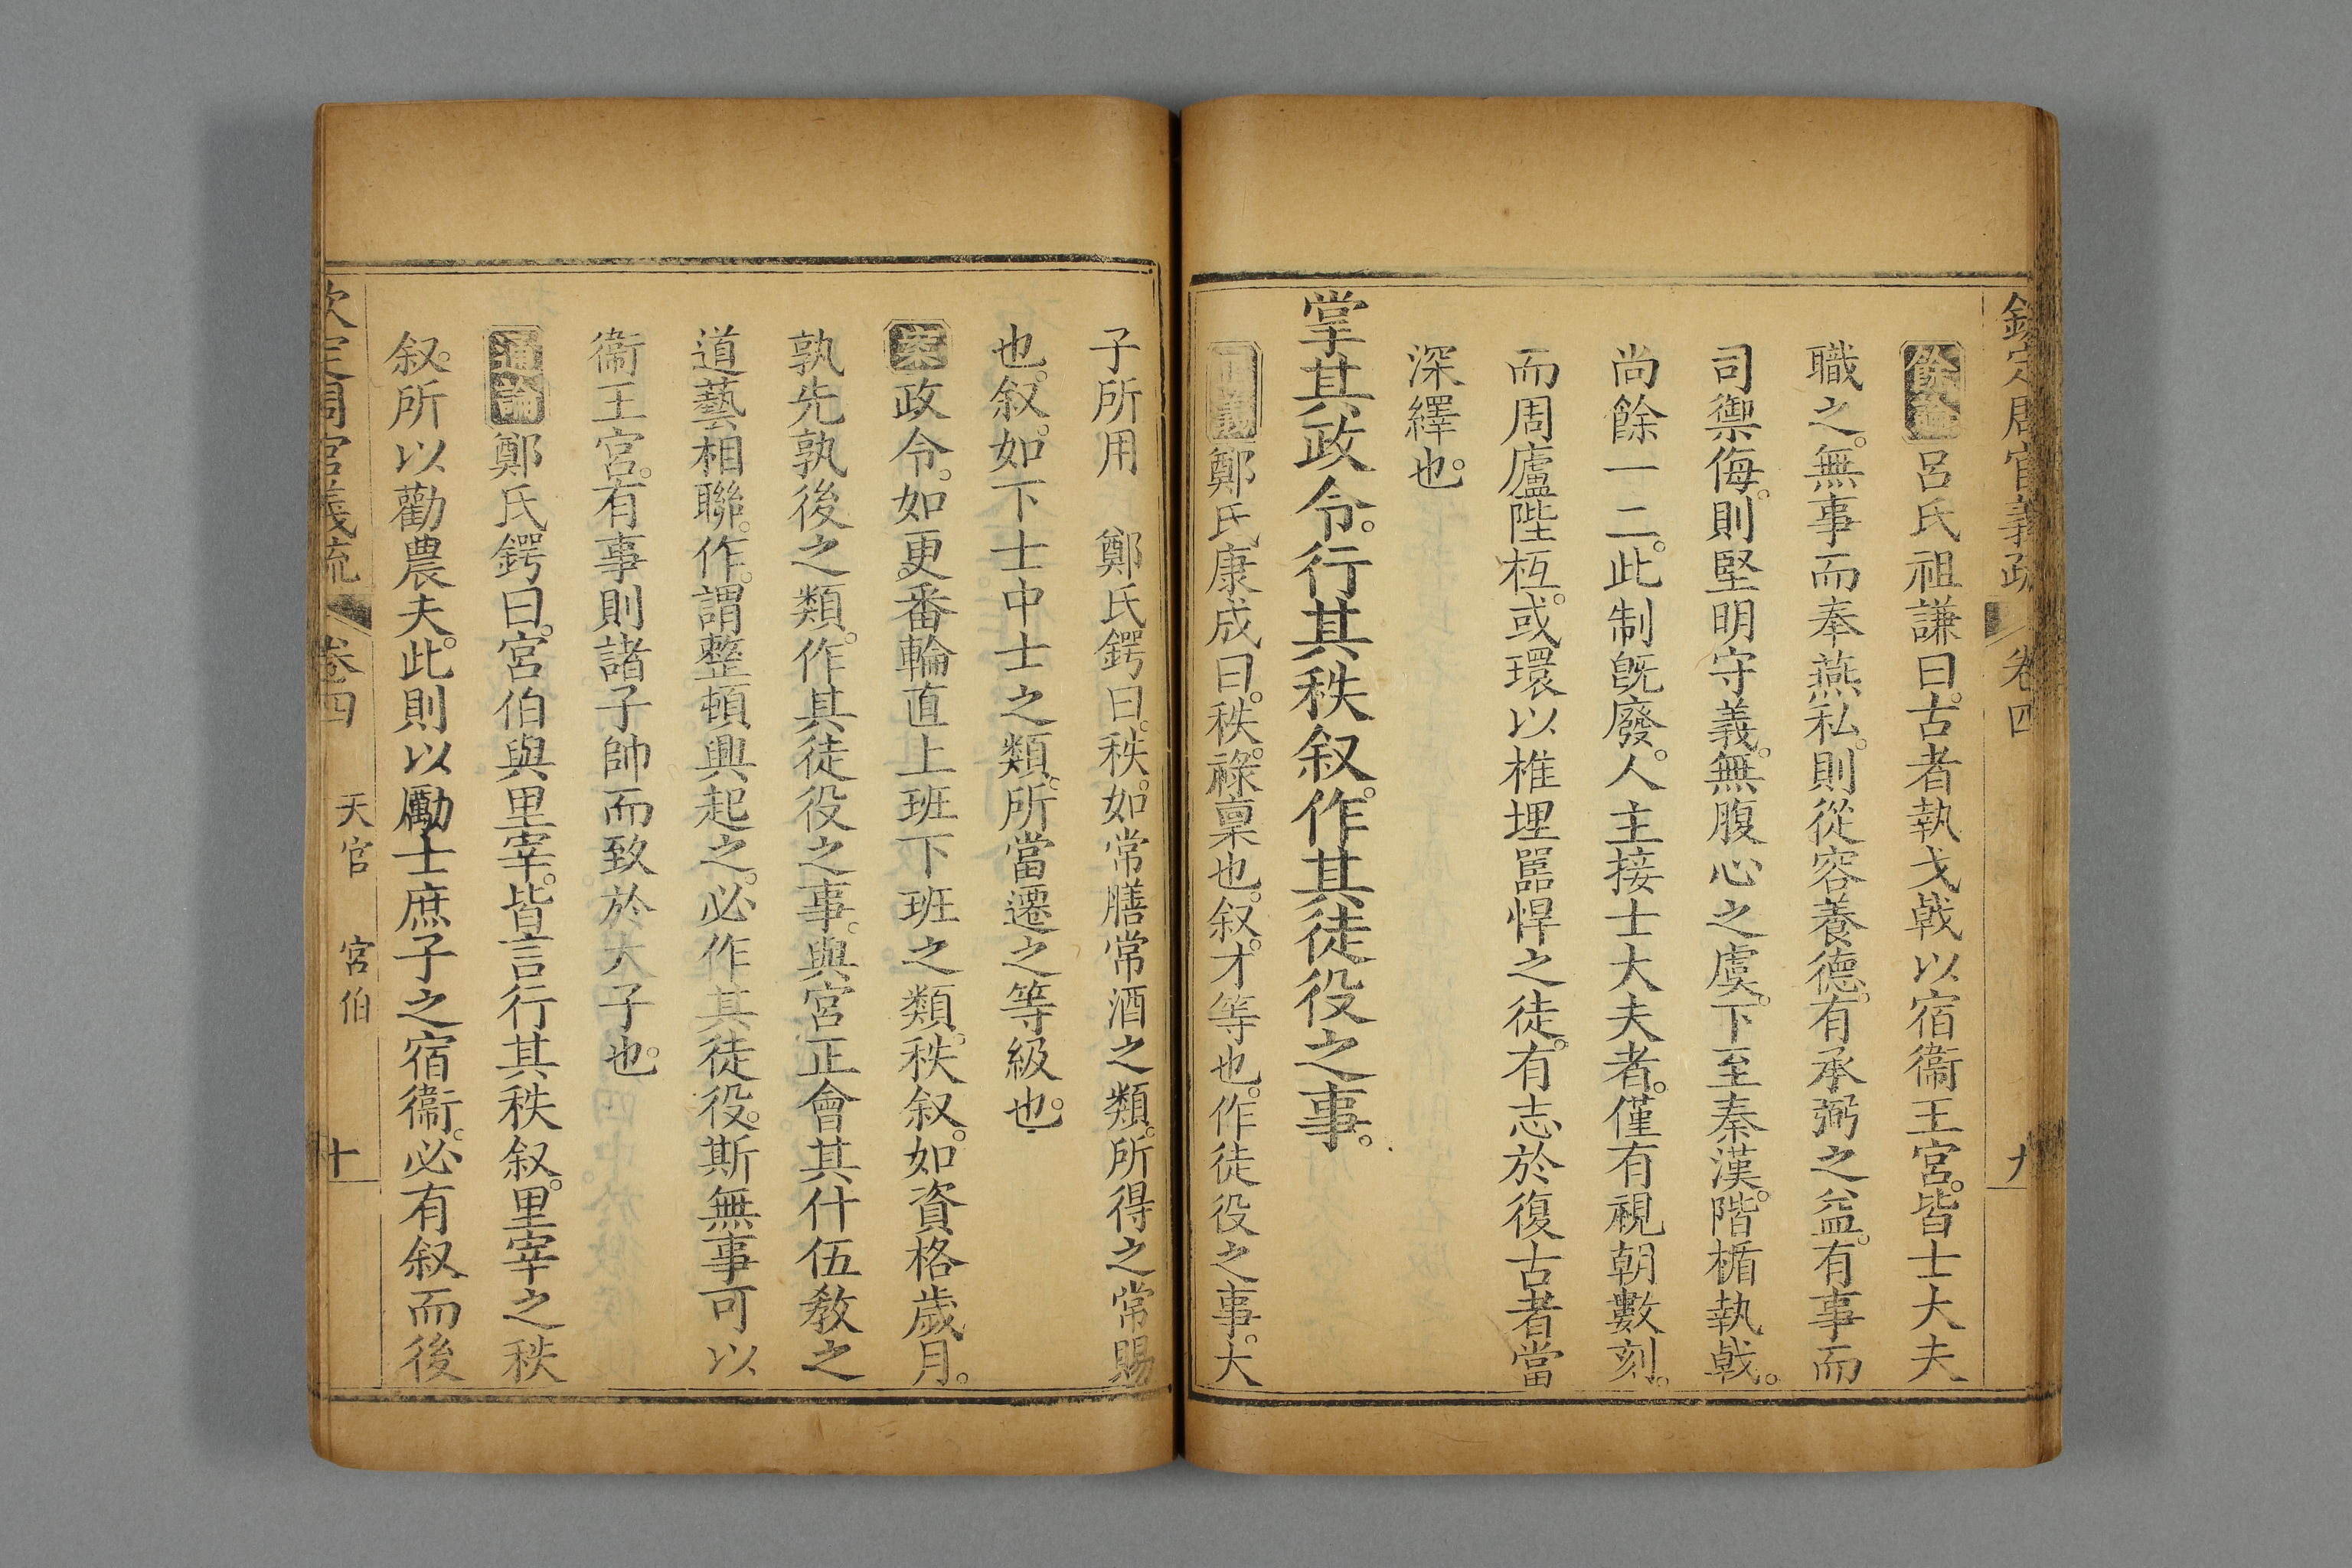 欽定周官義疏 卷四 九
餘論 呂氏祖謙曰。古者執戈戟以宿衞王宮。皆士大夫
職之。無事而奉燕私。則從容養德。有承弼之益。有事而
司禦侮。則堅明守義。無腹心之虞。下至秦漢。階楯執戟。
尚餘一二。此制旣廢。人主接士大夫者。僅有視朝數刻。
而周廬陛枑。或環以椎埋嚚悍之徒。有志於復古者當
深繹也。
掌其政令。行其秩叙。作其徒役之事。
正義 鄭氏康成曰。秩。祿稟也。叙。才等也。作徒役之事。大
子所用 鄭氏鍔曰。秩。如常膳常酒之類。所得之常賜
也。叙。如下士中士之類。所當遷之等級也。
案 政令。如更番輪直上班下班之類。秩叙。如資格歲月。
孰先孰後之類。作其徒役之事。與宮正會其什伍敎之
道藝相聯。作。謂整頓興起之。必作其徒役。斯無事可以
衞王宮。有事則諸子帥而致於大子也。
通論 鄭氏鍔曰。宮伯與里宰。皆言行其秩叙。里宰之秩
叙。所以勸農夫。此則以勵士庶子之宿衞。必有叙而後
欽定周官義疏 卷四 天官 宮伯 十